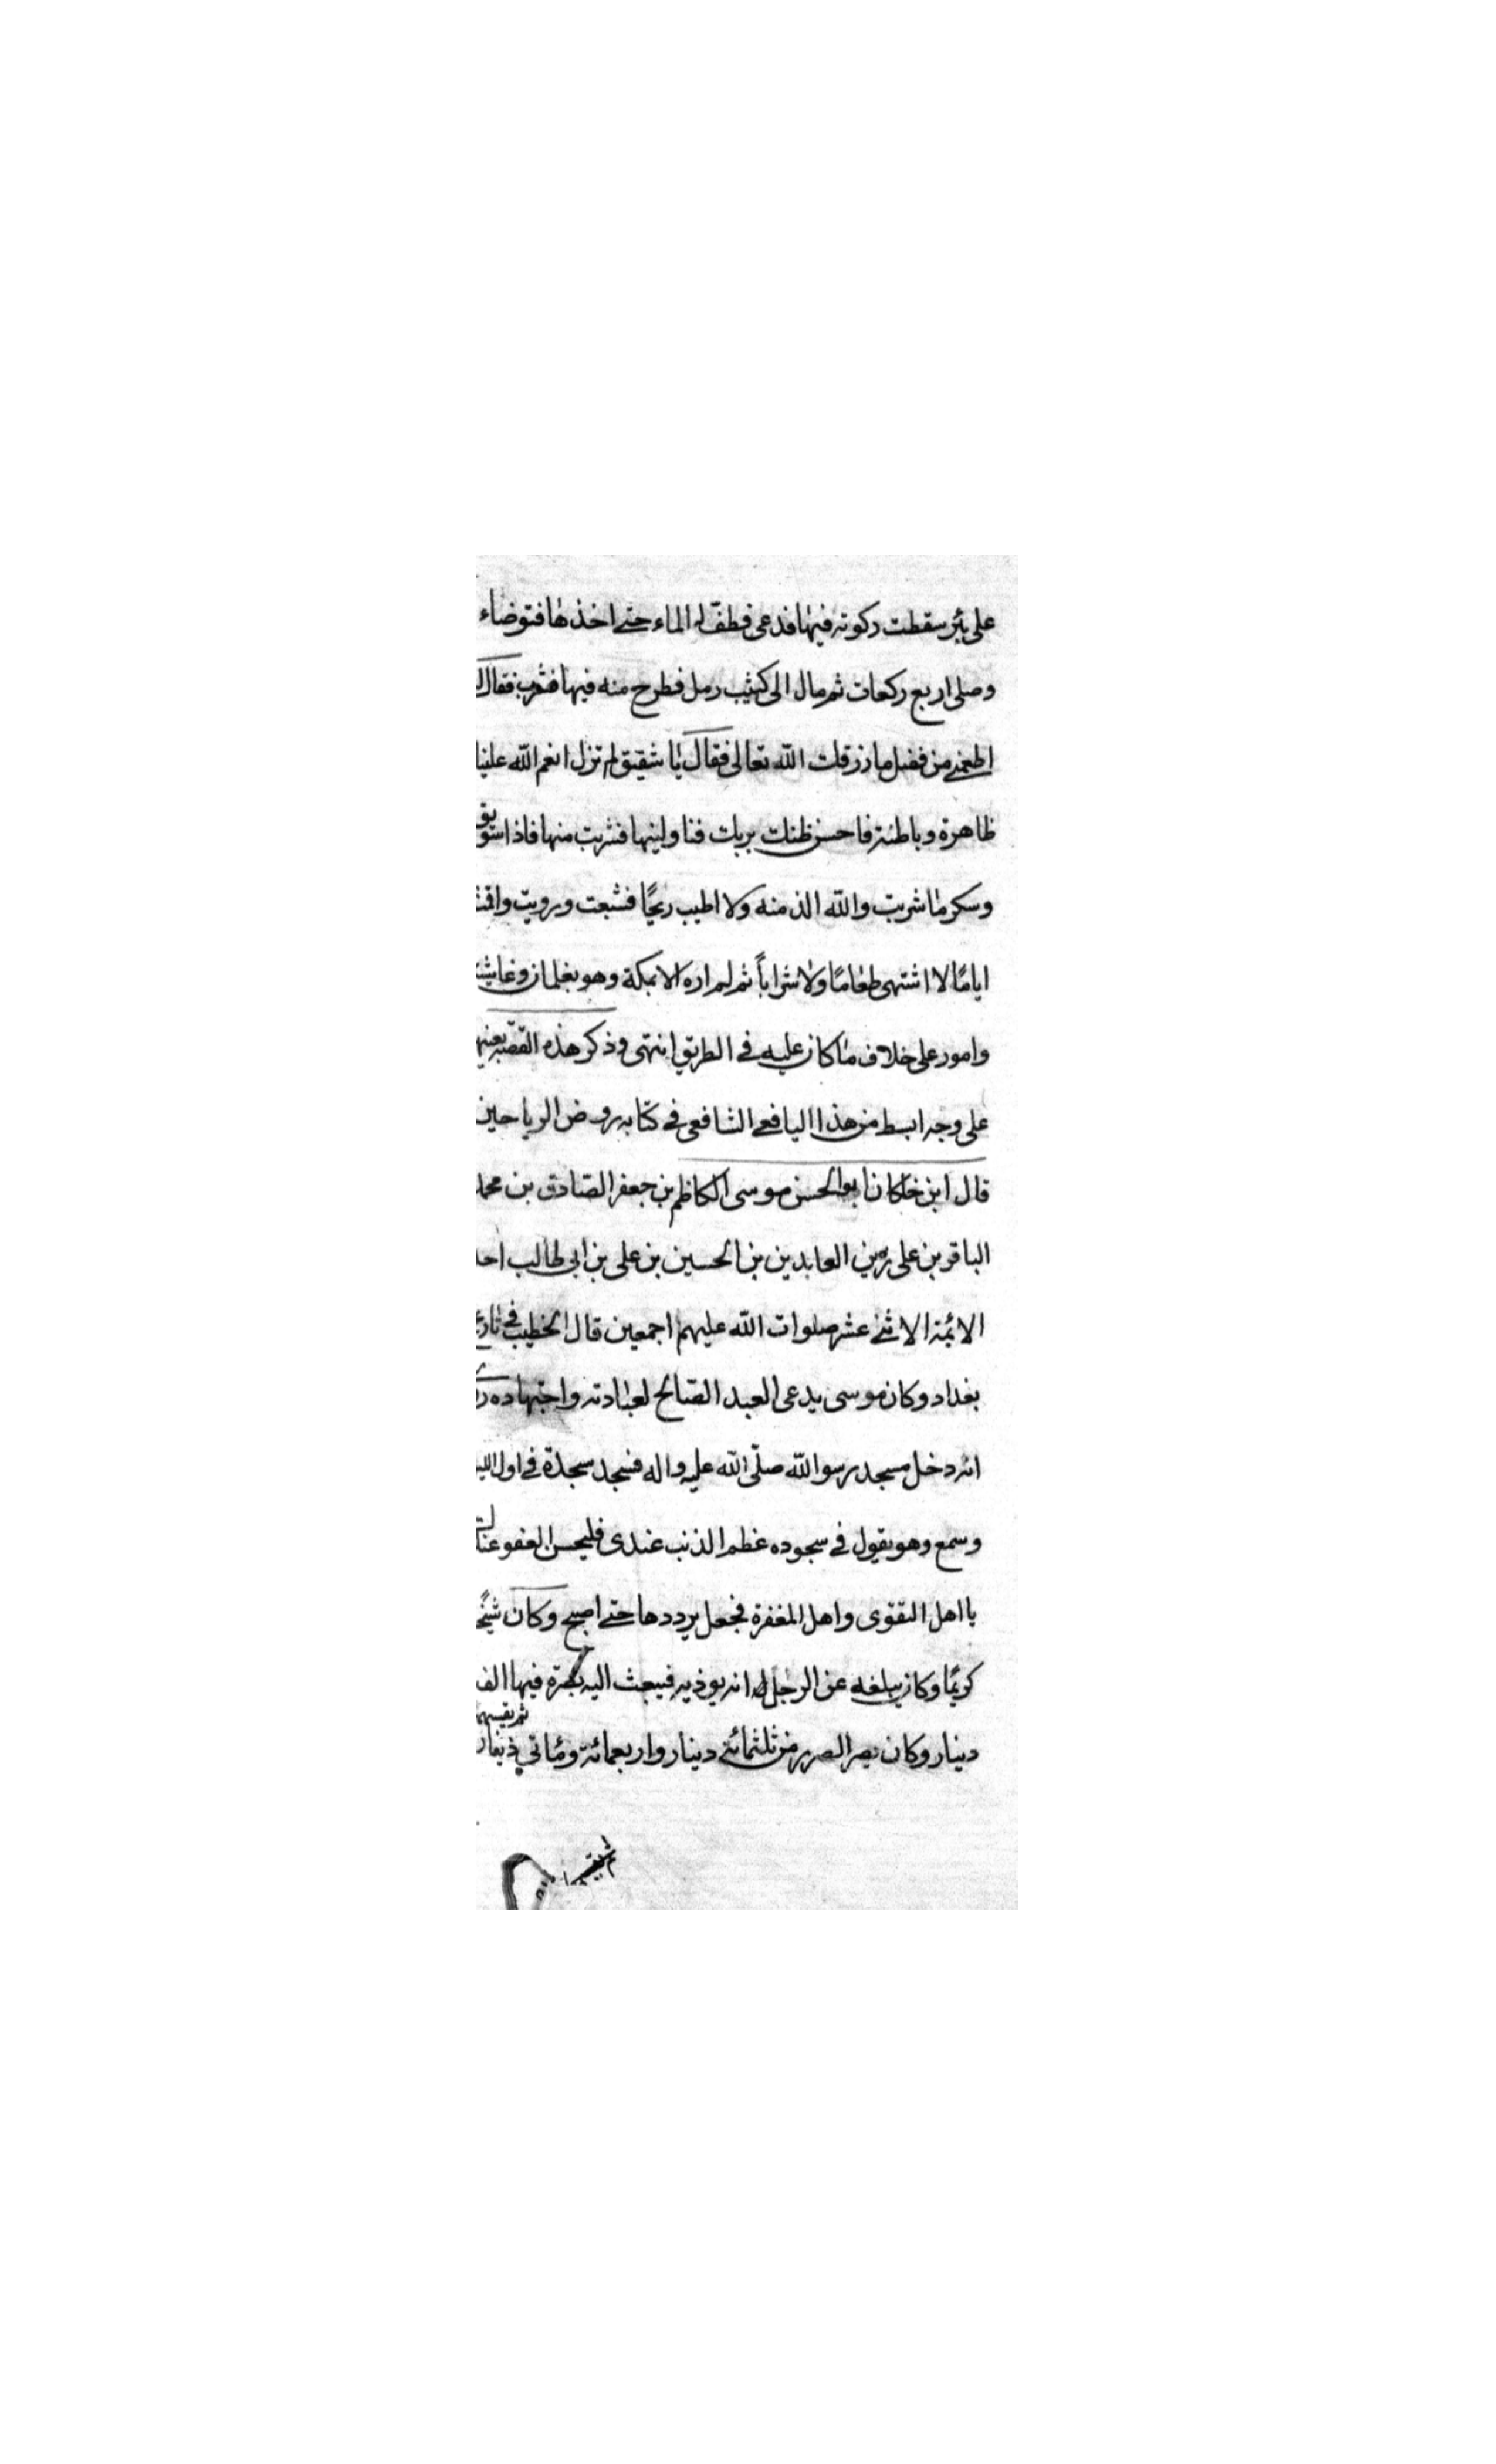 على بئر سقطت ركوته فيها فدعى فطف له الماء حتى اخذها فتوضاء
وصلى اربع ركعات ثم مال الى كثيب رمل فطرح منه فيها فشرب فقال
اطعمنى من فضل ما رزقك الله تعالى فقال يا شقيق لم تزل انعم الله علينا
ظاهرة وباطنة فاحسن ظنك بربك فناولنيها فشربت منها فاذا سويق
وسكر ما شربت والله الذ منه ولا اطيب ريحًا فشبعت ورويت واقمت
ايامًا لا اشتهى طعامًا ولا شرابًا ثم لم اره الا بمكة وهو بغلمان وغاشية
وامور على خلاف ما كان عليه فى الطريق انتهى وذكر هذه القصة بعينها
على وجه ابسط من هذا اليافعى الشافعى فى كتابه روض الرياحين
قال ابن خلكان ابو الحسن موسى الكاظم بن جعفر الصادق بن محمد
الباقر بن على زين العابدين بن الحسين بن على بن ابى طالب احد
الائمة الاثنى عشر صلوات الله عليهم اجمعين قال الخطيب فى تاريخ
بغداد وكان موسى يدعى العبد الصالح لعبادته واجتهاده
انه دخل مسجد رسول الله صلّى الله عليه واله فسجد سجدة فى اول الليل
وسمع وهو يقول فى سجوده عظم الذنب عندى فليحسن العفو عندك
يا اهل التقوى واهل المغفرة فجعل يرددها حتى اصبح وكان
كريمًا وكان يبلغه عن الرجل انه يوذيه فيبعث اليه بصرة فيها الف
دينار وكان يصر الصرر من ثلثمائة دينار واربعمائة ومأتى دينار
ثم يقسمها